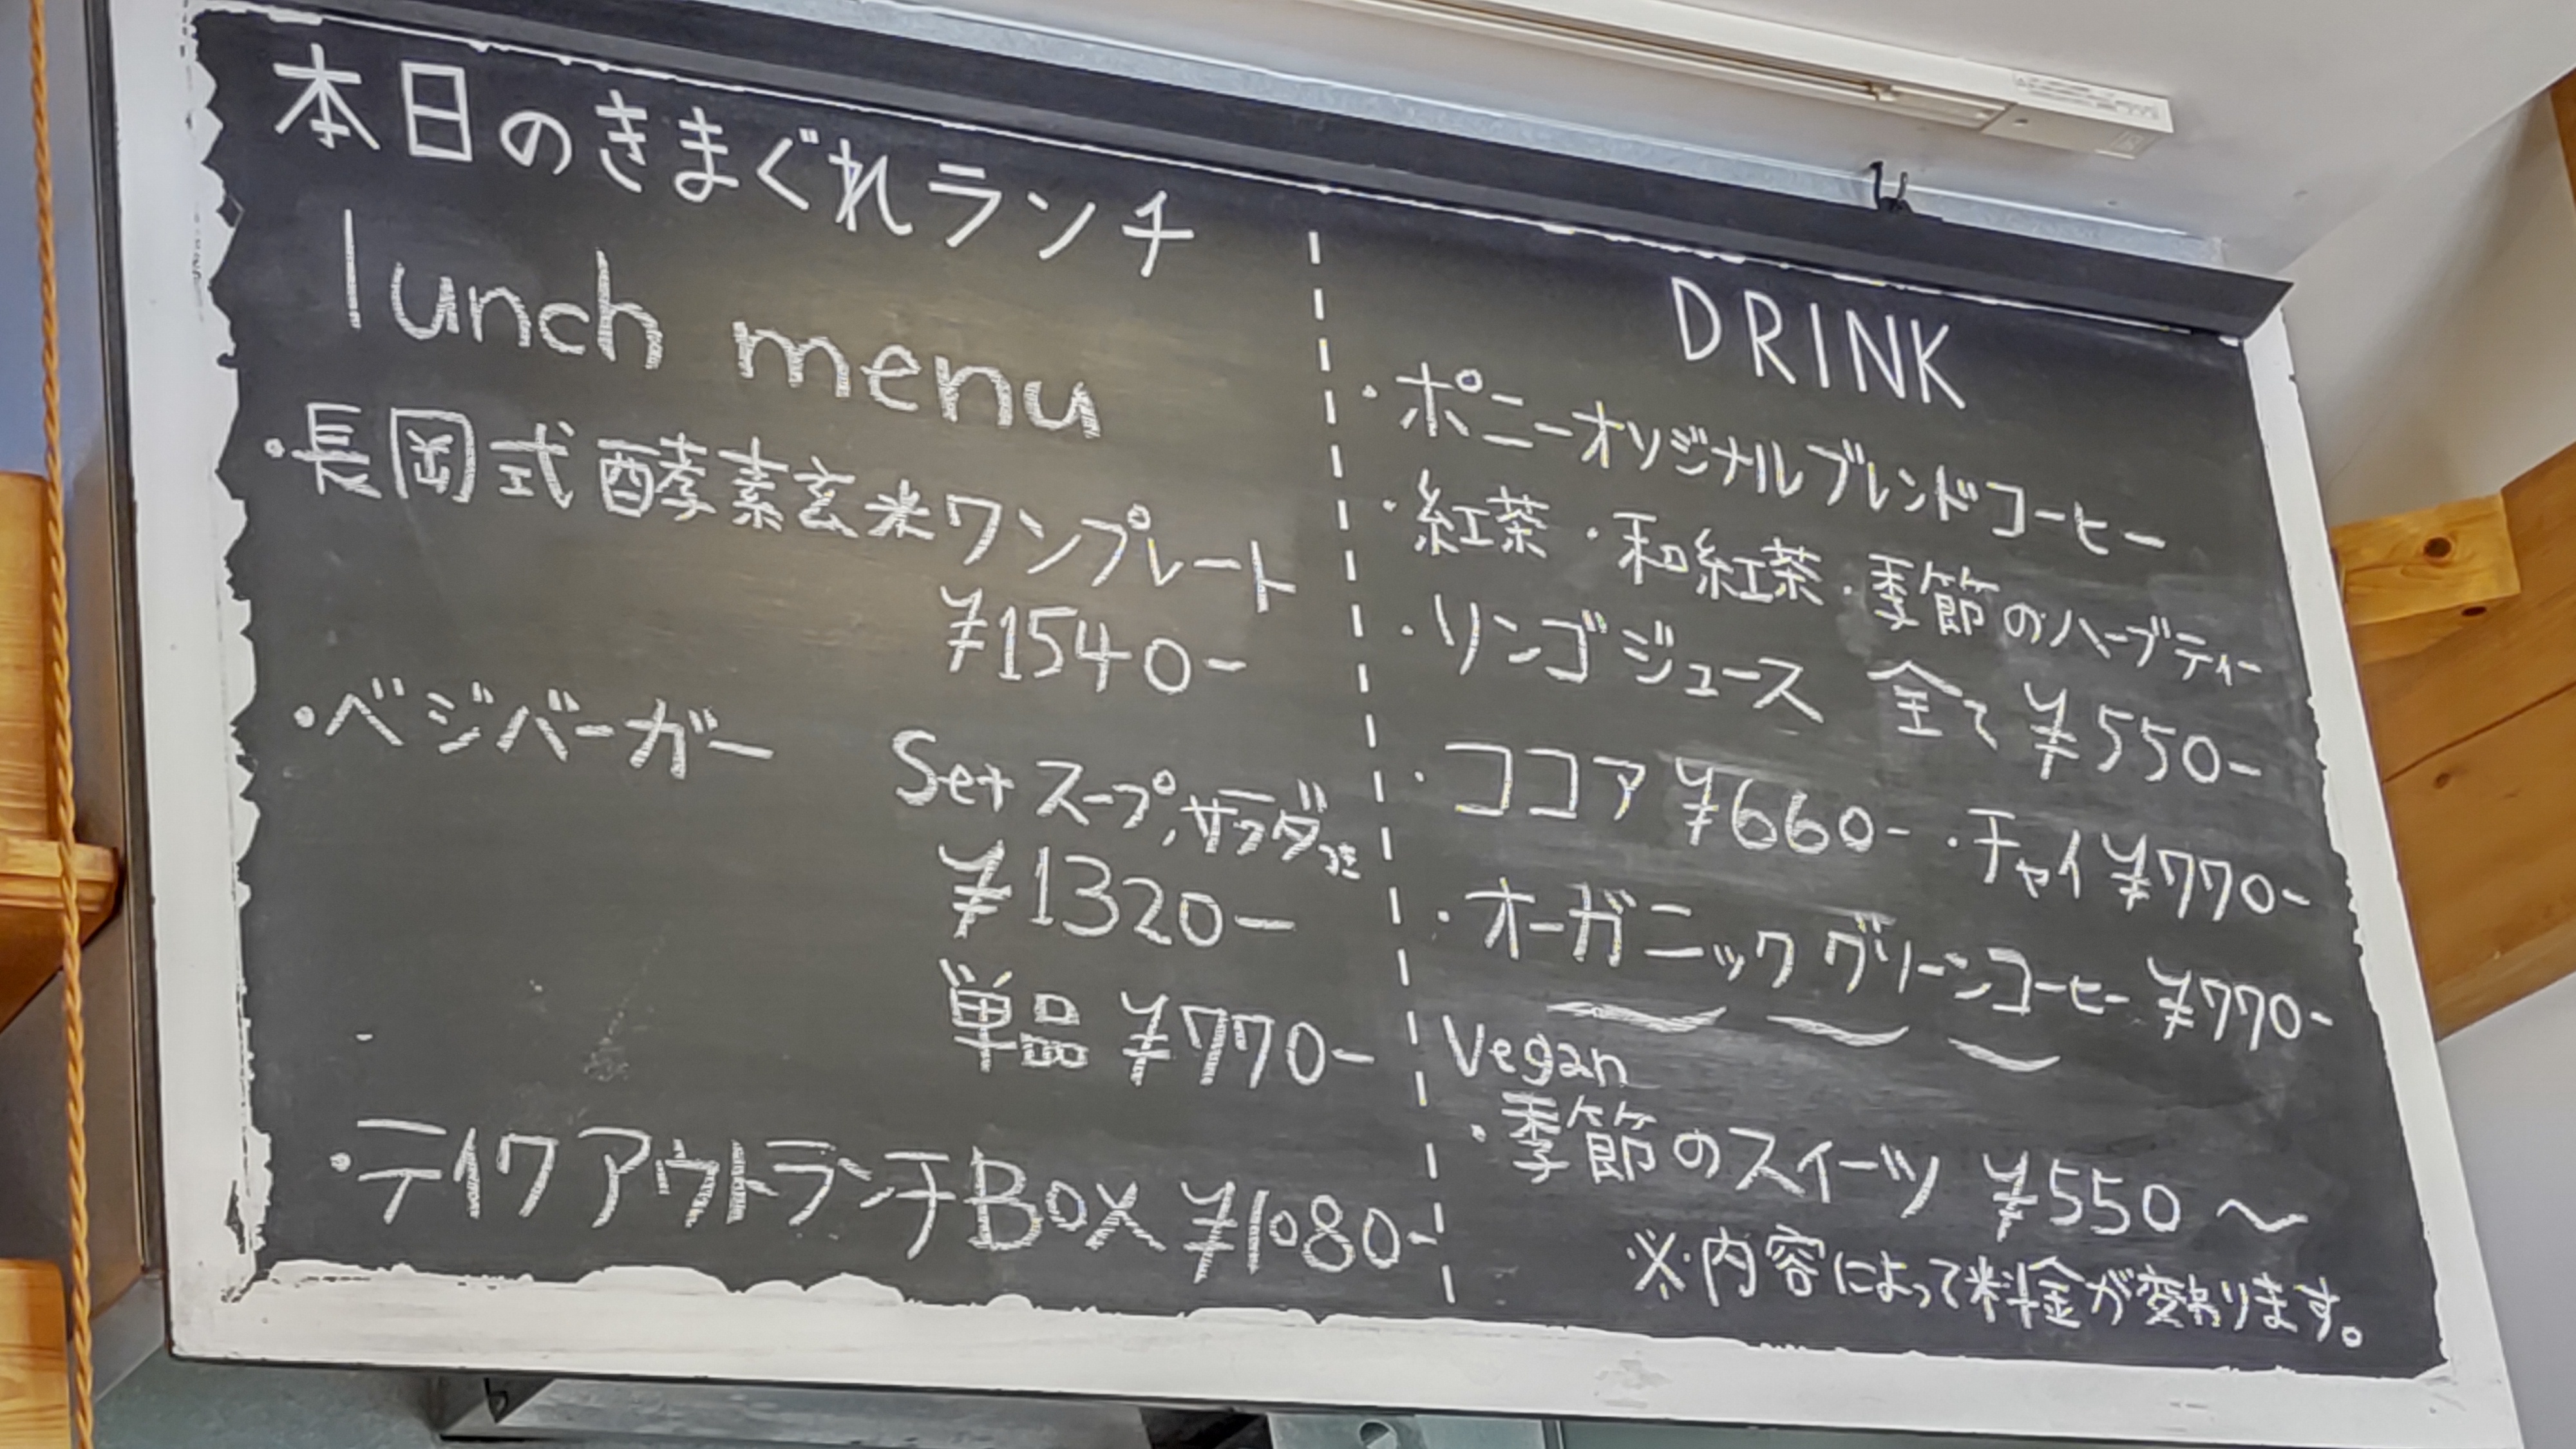 本日のきまぐれランチ
lunch menu
・長岡式酵素玄米ワンプレート
¥1540-
・ベジバーガー
Set スープ,サラダつき
¥1320-
単品 ¥770-
・テイクアウトランチBOX ¥1080-
DRINK
・ポニーオリジナルブレンドコーヒー
・紅茶・和紅茶・季節のハーブティー
・リンゴジュース 全て¥550-
・ココア ¥660- ・チャイ ¥770-
・オーガニックグリーンコーヒー ¥770-
Vegan
・季節のスイーツ ¥550〜
※内容によって料金が変わります。